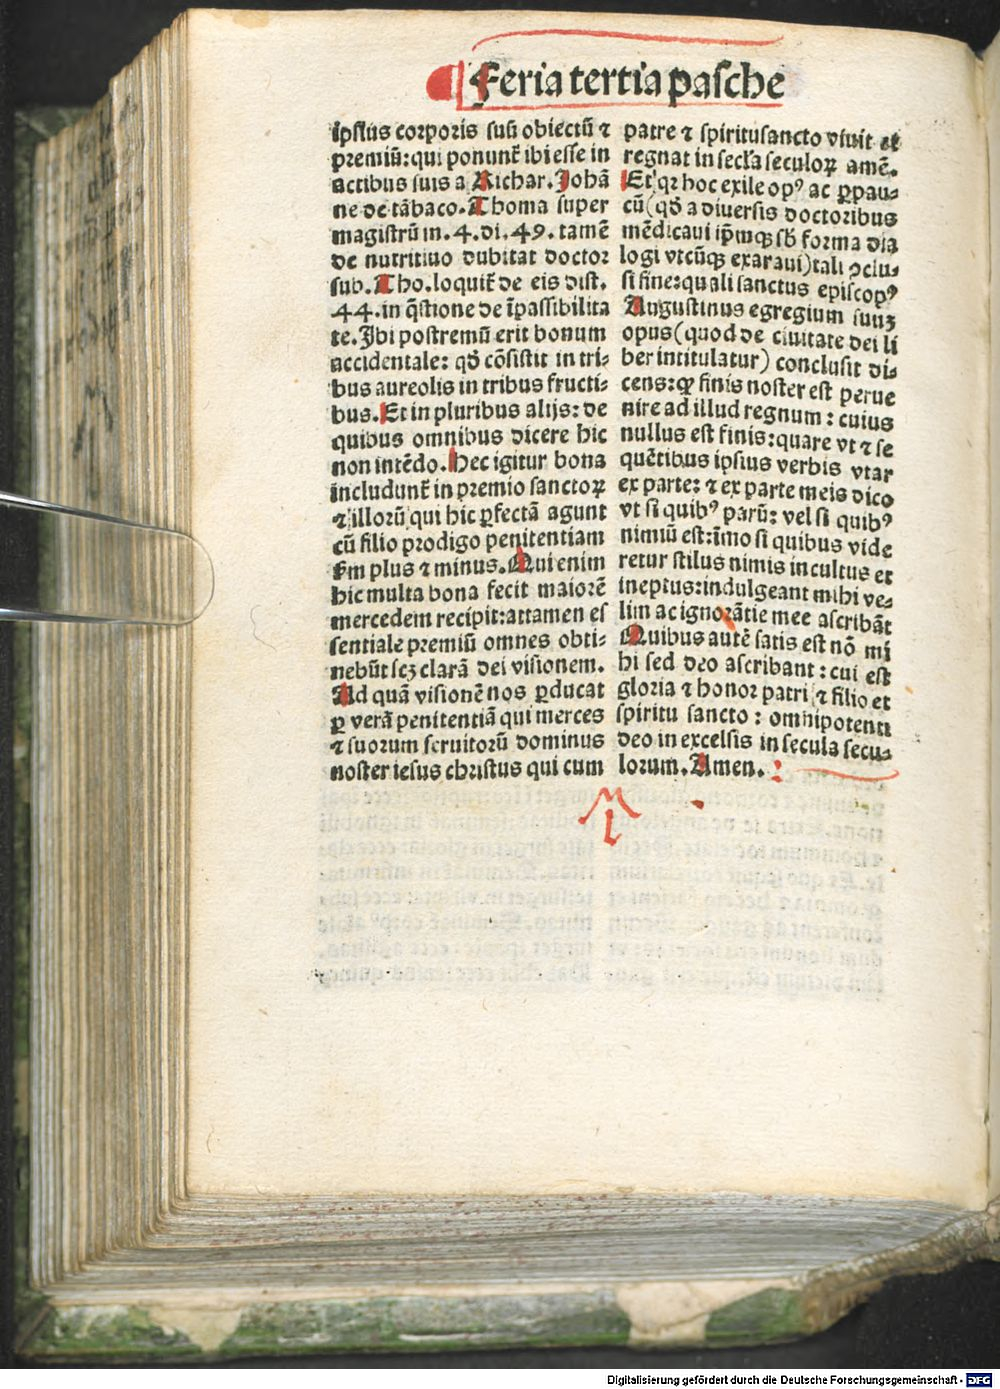 Feria tertia pasche
ipsius corporis suũ obiectũ ⁊
premiũ: qui ponunt᷑ ibi esse in
actibus suis a Richar. Johã
ne de tãbaco. Thoma super
magistrũ in. 4. di. 49. tamẽ
de nutritiuo dubitat doctor
sub. Tho. loquit᷑ de eis dist.
44. in q̃stione de ĩpassibilita
te. Ibi postremũ erit bonum
accidentale: qđ cõsistit in tri⸗
bus aureolis in tribus fructi⸗
bus. Et in pluribus alijs: de
quibus omnibus dicere hic
non intẽdo. Hec igitur bona
includunt᷑ in premio sanctoꝝ
⁊ illorũ qui hic ꝑfectã agunt
cũ filio prodigo penitentiam
ẜm plus ⁊ minus. Qui enim
hic multa bona fecit maiorẽ
mercedem recipit: attamen es
sentiale premiũ omnes obti⸗
nebũt scꝫ clarã dei visionem.
Ad quã visionẽ nos ꝑducat
ꝑ verã penitentiã qui merces
⁊ suorum seruitorũ dominus
noster iesus christus qui cum
patre ⁊ spiritusancto viuit et
regnat in secl̃a seculoꝝ amẽ.
Et qꝛ hoc exile opꝰ ac ꝑpau⸗
cũ (qđ a diuersis doctoribus
mẽdicaui ip̃mqꝫ sb̃ forma dia
logi vtcũqꝫ exaraui) tali ꝯclu⸗
si fine: quali sanctus episcopꝰ
Augustinus egregium suuꝫ
opus (quod de ciuitate dei li
ber intitulatur) conclusit di⸗
cens: ꝙ finis noster est perue
nire ad illud regnum: cuius
nullus est finis: quare vt ⁊ se
quẽtibus ipsius verbis vtar
ex parte: ⁊ ex parte meis dico
vt si quibꝰ parũ: vel si quibꝰ
nimiũ est: ĩmo si quibus vide
retur stilus nimis incultus et
ineptus: indulgeant mihi ve⸗
lim ac ignorãtie mee ascribãt
Quibus autẽ satis est nõ mi
hi sed deo ascribant: cui est
gloria ⁊ honor patri ⁊ filio et
spiritu sancto: omnipotenti
deo in excelsis in secula secu⸗
lorum. Amen.
Digitalisierung gefördert durch die Deutsche Forschungsgemeinschaft - DFG